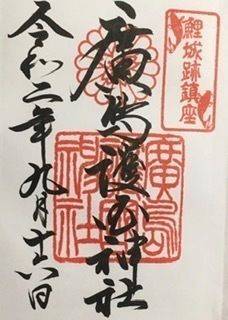 鯉城跡鎮座
廣島護国神社
令和二年九月十六日
廣島護國神社